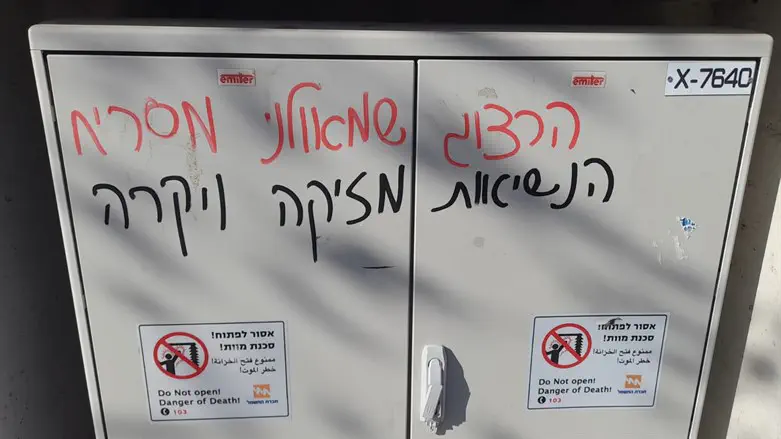 emiter
emiter
X-7640
הרצוג שמאולני מסריח
הנשיאות מזיקה ויקרה
אסור לפתוח!
סכנת מוות!
ممنوع فتح الخزانة!
خطر الموت!
Do Not open!
Danger of Death!
103
חברת החשמל
אסור לפתוח!
סכנת מוות!
ممنوع فتح الخزانة!
خطر الموت!
Do Not open!
Danger of Death!
103
חברת החשמל